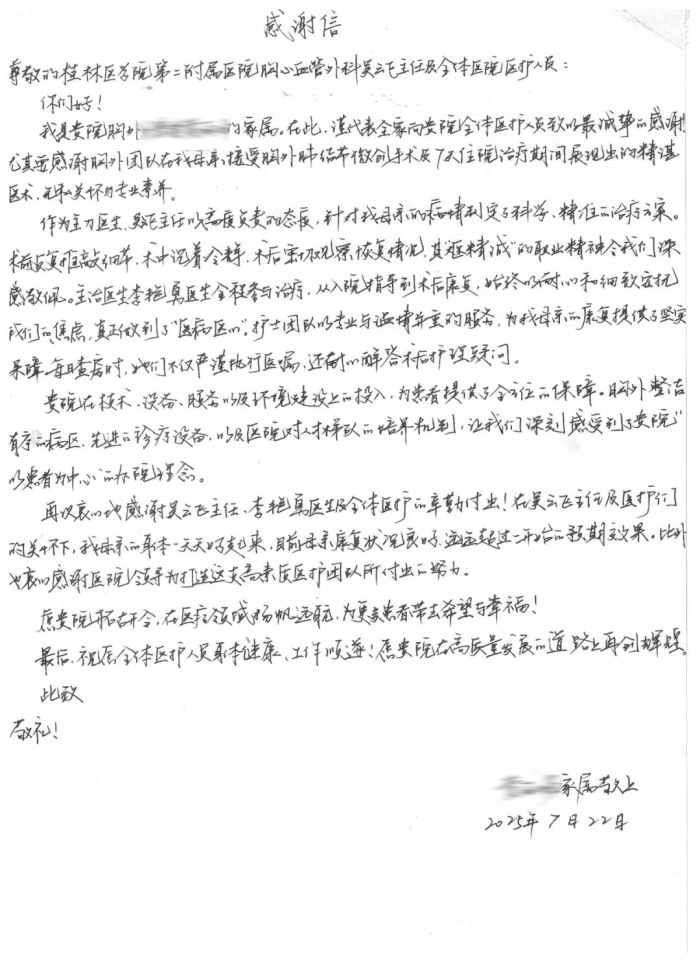 感谢信
尊敬的桂林医学院第二附属医院胸心血管外科吴云飞主任及全体医院医护人员：
你们好！
我是贵院胸外 的家属。在此，谨代表全家向贵院全体医护人员致以最诚挚的感谢
尤其要感谢胸外团队在我母亲接受胸外肺结节微创手术及7天住院治疗期间展现出的精湛
医术、无私关怀与专业素养。
作为主刀医生，吴云飞主任以高度负责的态度，针对我母亲的病情制定了科学、精准的治疗方案。
术前反复推敲细节，术中沉着冷静，术后密切观察恢复情况，其“医精诚”的职业精神令我们深
感敬佩。主治医生李艳勇医生全程参与治疗，从入院指导到术后康复，始终以耐心和细致安抚
我们的焦虑，真正做到了“医病医心”。护士团队以专业与温情并重的服务，为我母亲的康复提供了坚实
保障。每日查房时，她们不仅严谨执行医嘱，还耐心解答术后护理疑问。
贵院在技术、设备、服务以及环境建设上的投入，为患者提供了全方位的保障。胸外整洁
有序的病区、先进的诊疗设备，以及医院对人才梯队的培养机制，让我们深刻感受到了贵院“
以患者为中心”的办院理念。
再次衷心地感谢吴云飞主任、李艳勇医生及全体医护的辛勤付出！在吴云飞主任及医护们
的关怀下，我母亲的身体一天天好起来，目前母亲康复状况良好，远远超过一开始的预期效果。此外
也衷心感谢医院领导为打造这支高素质医护团队所付出的努力。
愿贵院在医疗领域扬帆远航，为更多患者带去希望与幸福！
最后，祝愿全体医护人员身体健康、工作顺遂！愿贵院在高质量发展的道路上再创辉煌。
此致
敬礼！
家属敬上
2025年7月22日